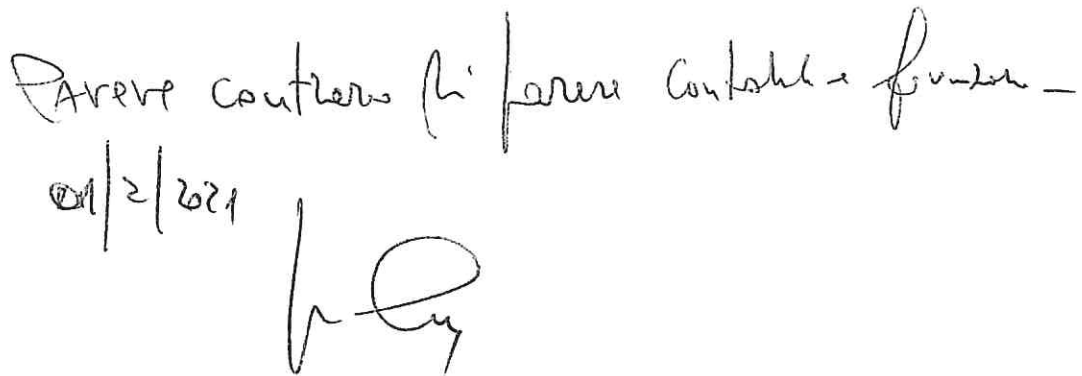 Parere contrario parere contabile e
01/2/2021